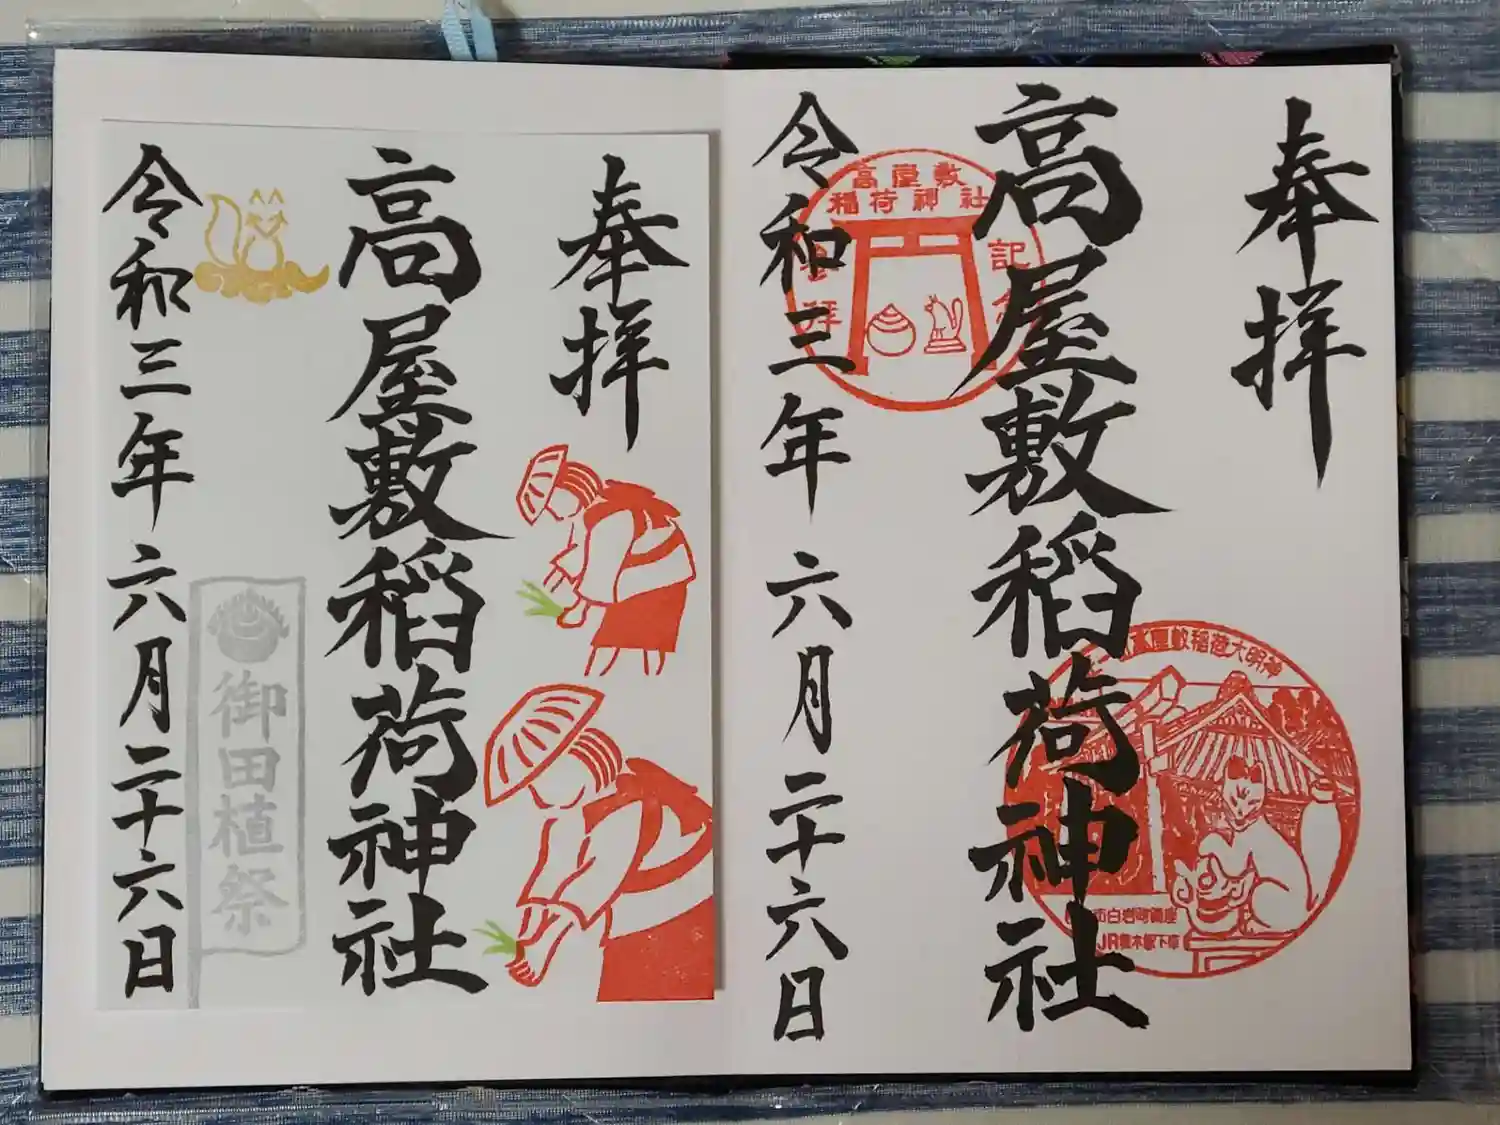 奉拝
高屋敷稲荷神社
令和三年六月二十六日
高屋敷
稲荷神社
記
拝
高屋敷稲荷大明神
市白岩町鎮座
奉拝
高屋敷稲荷神社
令和三年六月二十六日
御田植祭